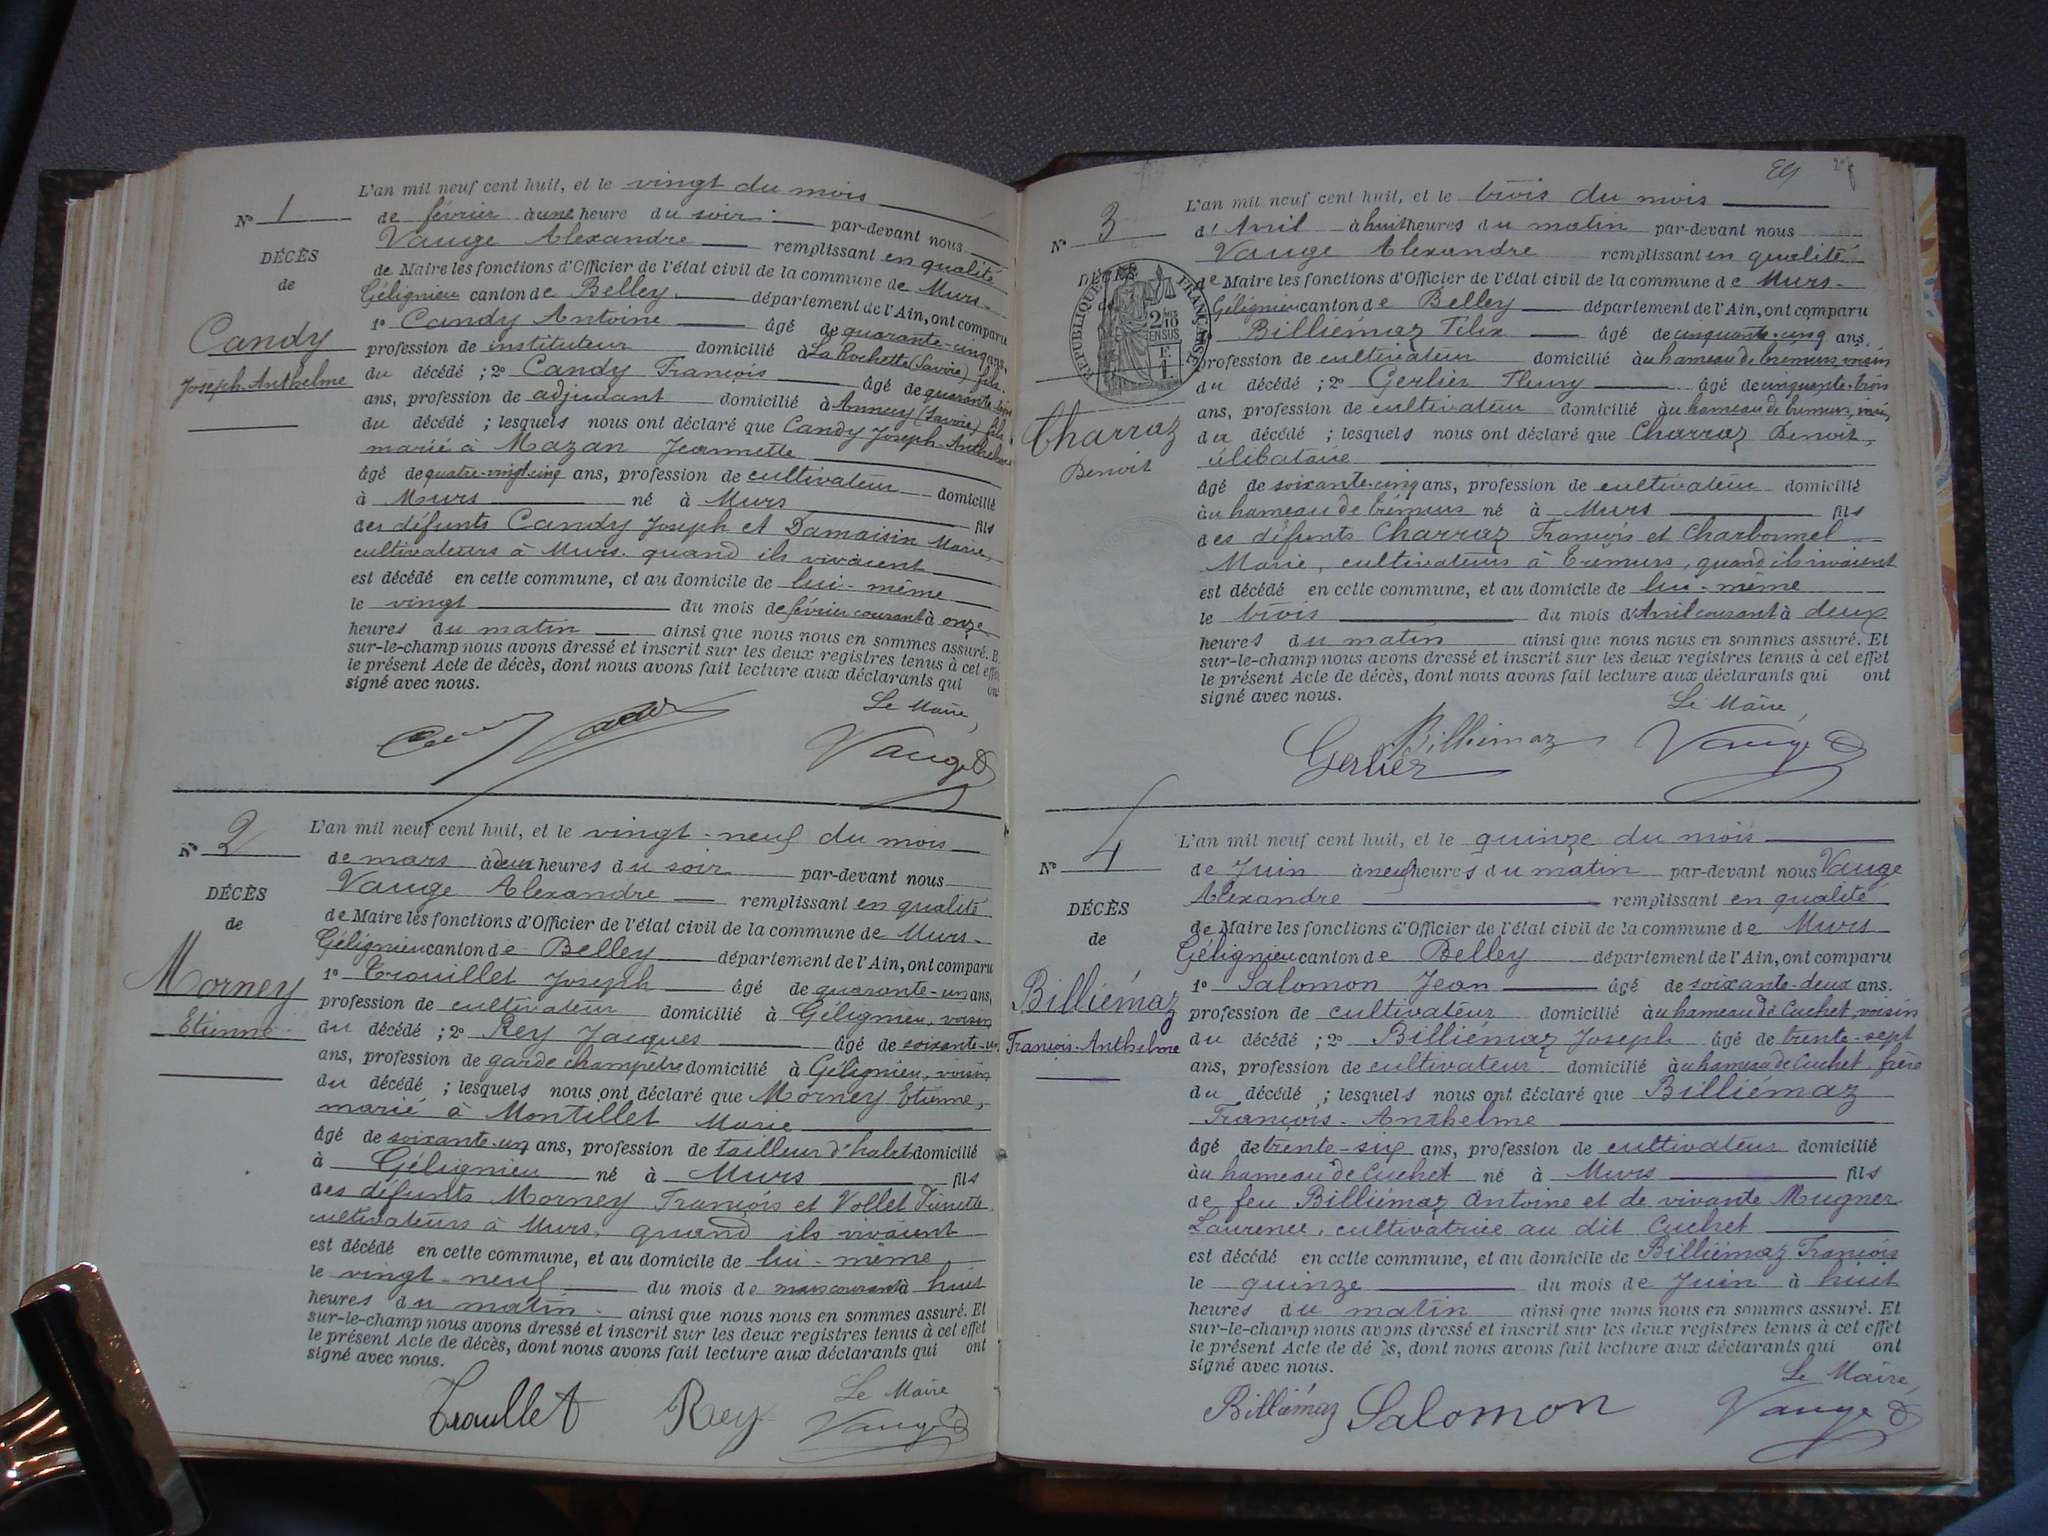 N° 1
DÉCÈS
de
Candy
Joseph-Anthelme
L'an mil neuf cent huit, et le vingt du mois
de février à une heure du soir par-devant nous
Vauge Alexandre remplissant en qualité
de Maire les fonctions d'Officier de l'état civil de la commune de Murs-
Gélignieu canton de Belley département de l'Ain, ont comparu
1° Candy Antoine âgé de quarante-cinq ans,
profession de instituteur domicilié à La Rochette (Savoie) fils
du décédé ; 2° Candy François âgé de quarante-trois
ans, profession de adjudant domicilié à Annecy (Savoie) fils
du décédé ; lesquels nous ont déclaré que Candy Joseph-Anthelme
marié à Mazan Jeannette
âgé de quatre-vingt-cinq ans, profession de cultivateur domicilié
à Murs né à Murs fils
des défunts Candy Joseph et Damaisin Marie,
cultivateurs à Murs, quand ils vivaient
est décédé en cette commune, et au domicile de lui-même
le vingt du mois de février courant à onze
heures du matin ainsi que nous nous en sommes assuré. Et
sur-le-champ nous avons dressé et inscrit sur les deux registres tenus à cet effet
le présent Acte de décès, dont nous avons fait lecture aux déclarants qui ont
signé avec nous.
Le Maire,
Vauge
N° 2
DÉCÈS
de
Morney
Etienne
L'an mil neuf cent huit, et le vingt-neuf du mois
de mars à deux heures du soir par-devant nous
Vauge Alexandre remplissant en qualité
de Maire les fonctions d'Officier de l'état civil de la commune de Murs-
Gélignieu canton de Belley département de l'Ain, ont comparu
1° Trouillet Joseph âgé de quarante-un ans,
profession de cultivateur domicilié à Gélignieu, voisin
du décédé ; 2° Rey Jacques âgé de soixante-un
ans, profession de garde champêtre domicilié à Gélignieu, voisin
du décédé ; lesquels nous ont déclaré que Morney Etienne,
marié à Montillet Marie
âgé de soixante-un ans, profession de tailleur d'habits domicilié
à Gélignieu né à Murs fils
des défunts Morney François et Vollet
cultivateurs à Murs, quand ils vivaient
est décédé en cette commune, et au domicile de lui-même
le vingt-neuf du mois de mars courant à huit
heures du matin ainsi que nous nous en sommes assuré. Et
sur-le-champ nous avons dressé et inscrit sur les deux registres tenus à cet effet
le présent Acte de décès, dont nous avons fait lecture aux déclarants qui ont
signé avec nous.
Le Maire
Trouillet Rey Vauge
N° 3
DÉCÈS
RÉPUBLIQUE FRANÇAISE
Charraz
Benoit
L'an mil neuf cent huit, et le trois du mois
d'Avril à huit heures du matin par-devant nous
Vauge Alexandre remplissant en qualité
de Maire les fonctions d'Officier de l'état civil de la commune de Murs-
Gélignieu canton de Belley département de l'Ain, ont comparu
Billiémaz Félix âgé de cinquante-cinq ans,
profession de cultivateur domicilié au hameau de Crémurs, voisin
du décédé ; 2° Gerlier Fleury âgé de cinquante-trois
ans, profession de cultivateur domicilié au hameau de Crémurs, voisin
du décédé ; lesquels nous ont déclaré que Charraz Benoit,
célibataire
âgé de soixante-cinq ans, profession de cultivateur domicilié
au hameau de Crémurs né à Murs fils
des défunts Charraz François et Charbonnel
Marie, cultivateurs à Crémurs, quand ils vivaient
est décédé en cette commune, et au domicile de lui-même
le trois du mois d'Avril courant à deux
heures du matin ainsi que nous nous en sommes assuré. Et
sur-le-champ nous avons dressé et inscrit sur les deux registres tenus à cet effet
le présent Acte de décès, dont nous avons fait lecture aux déclarants qui ont
signé avec nous.
Le Maire,
Gerlier Billiémaz Vauge
N° 4
DÉCÈS
de
Billiémaz
François-Anthelme
L'an mil neuf cent huit, et le quinze du mois
de Juin à neuf heures du matin par-devant nous Vauge
Alexandre remplissant en qualité
de Maire les fonctions d'Officier de l'état civil de la commune de Murs
Gélignieu canton de Belley département de l'Ain, ont comparu
1° Salomon Jean âgé de soixante-deux ans.
profession de cultivateur domicilié au hameau de Cuchet, voisin
du décédé ; 2° Billiémaz Joseph âgé de trente-sept
ans, profession de cultivateur domicilié au hameau de Cuchet, frère
du décédé ; lesquels nous ont déclaré que Billiémaz
François-Anthelme
âgé de trente-six ans, profession de cultivateur domicilié
au hameau de Cuchet né à Murs fils
de feu Billiémaz Antoine et de vivante Mugner
Laurence, cultivatrice au dit Cuchet
est décédé en cette commune, et au domicile de Billiémaz François
le quinze du mois de Juin à huit
heures du matin ainsi que nous nous en sommes assuré. Et
sur-le-champ nous avons dressé et inscrit sur les deux registres tenus à cet effet
le présent Acte de dé s, dont nous avons fait lecture aux déclarants qui ont
signé avec nous.
Le Maire,
Billiémaz Salomon Vauge